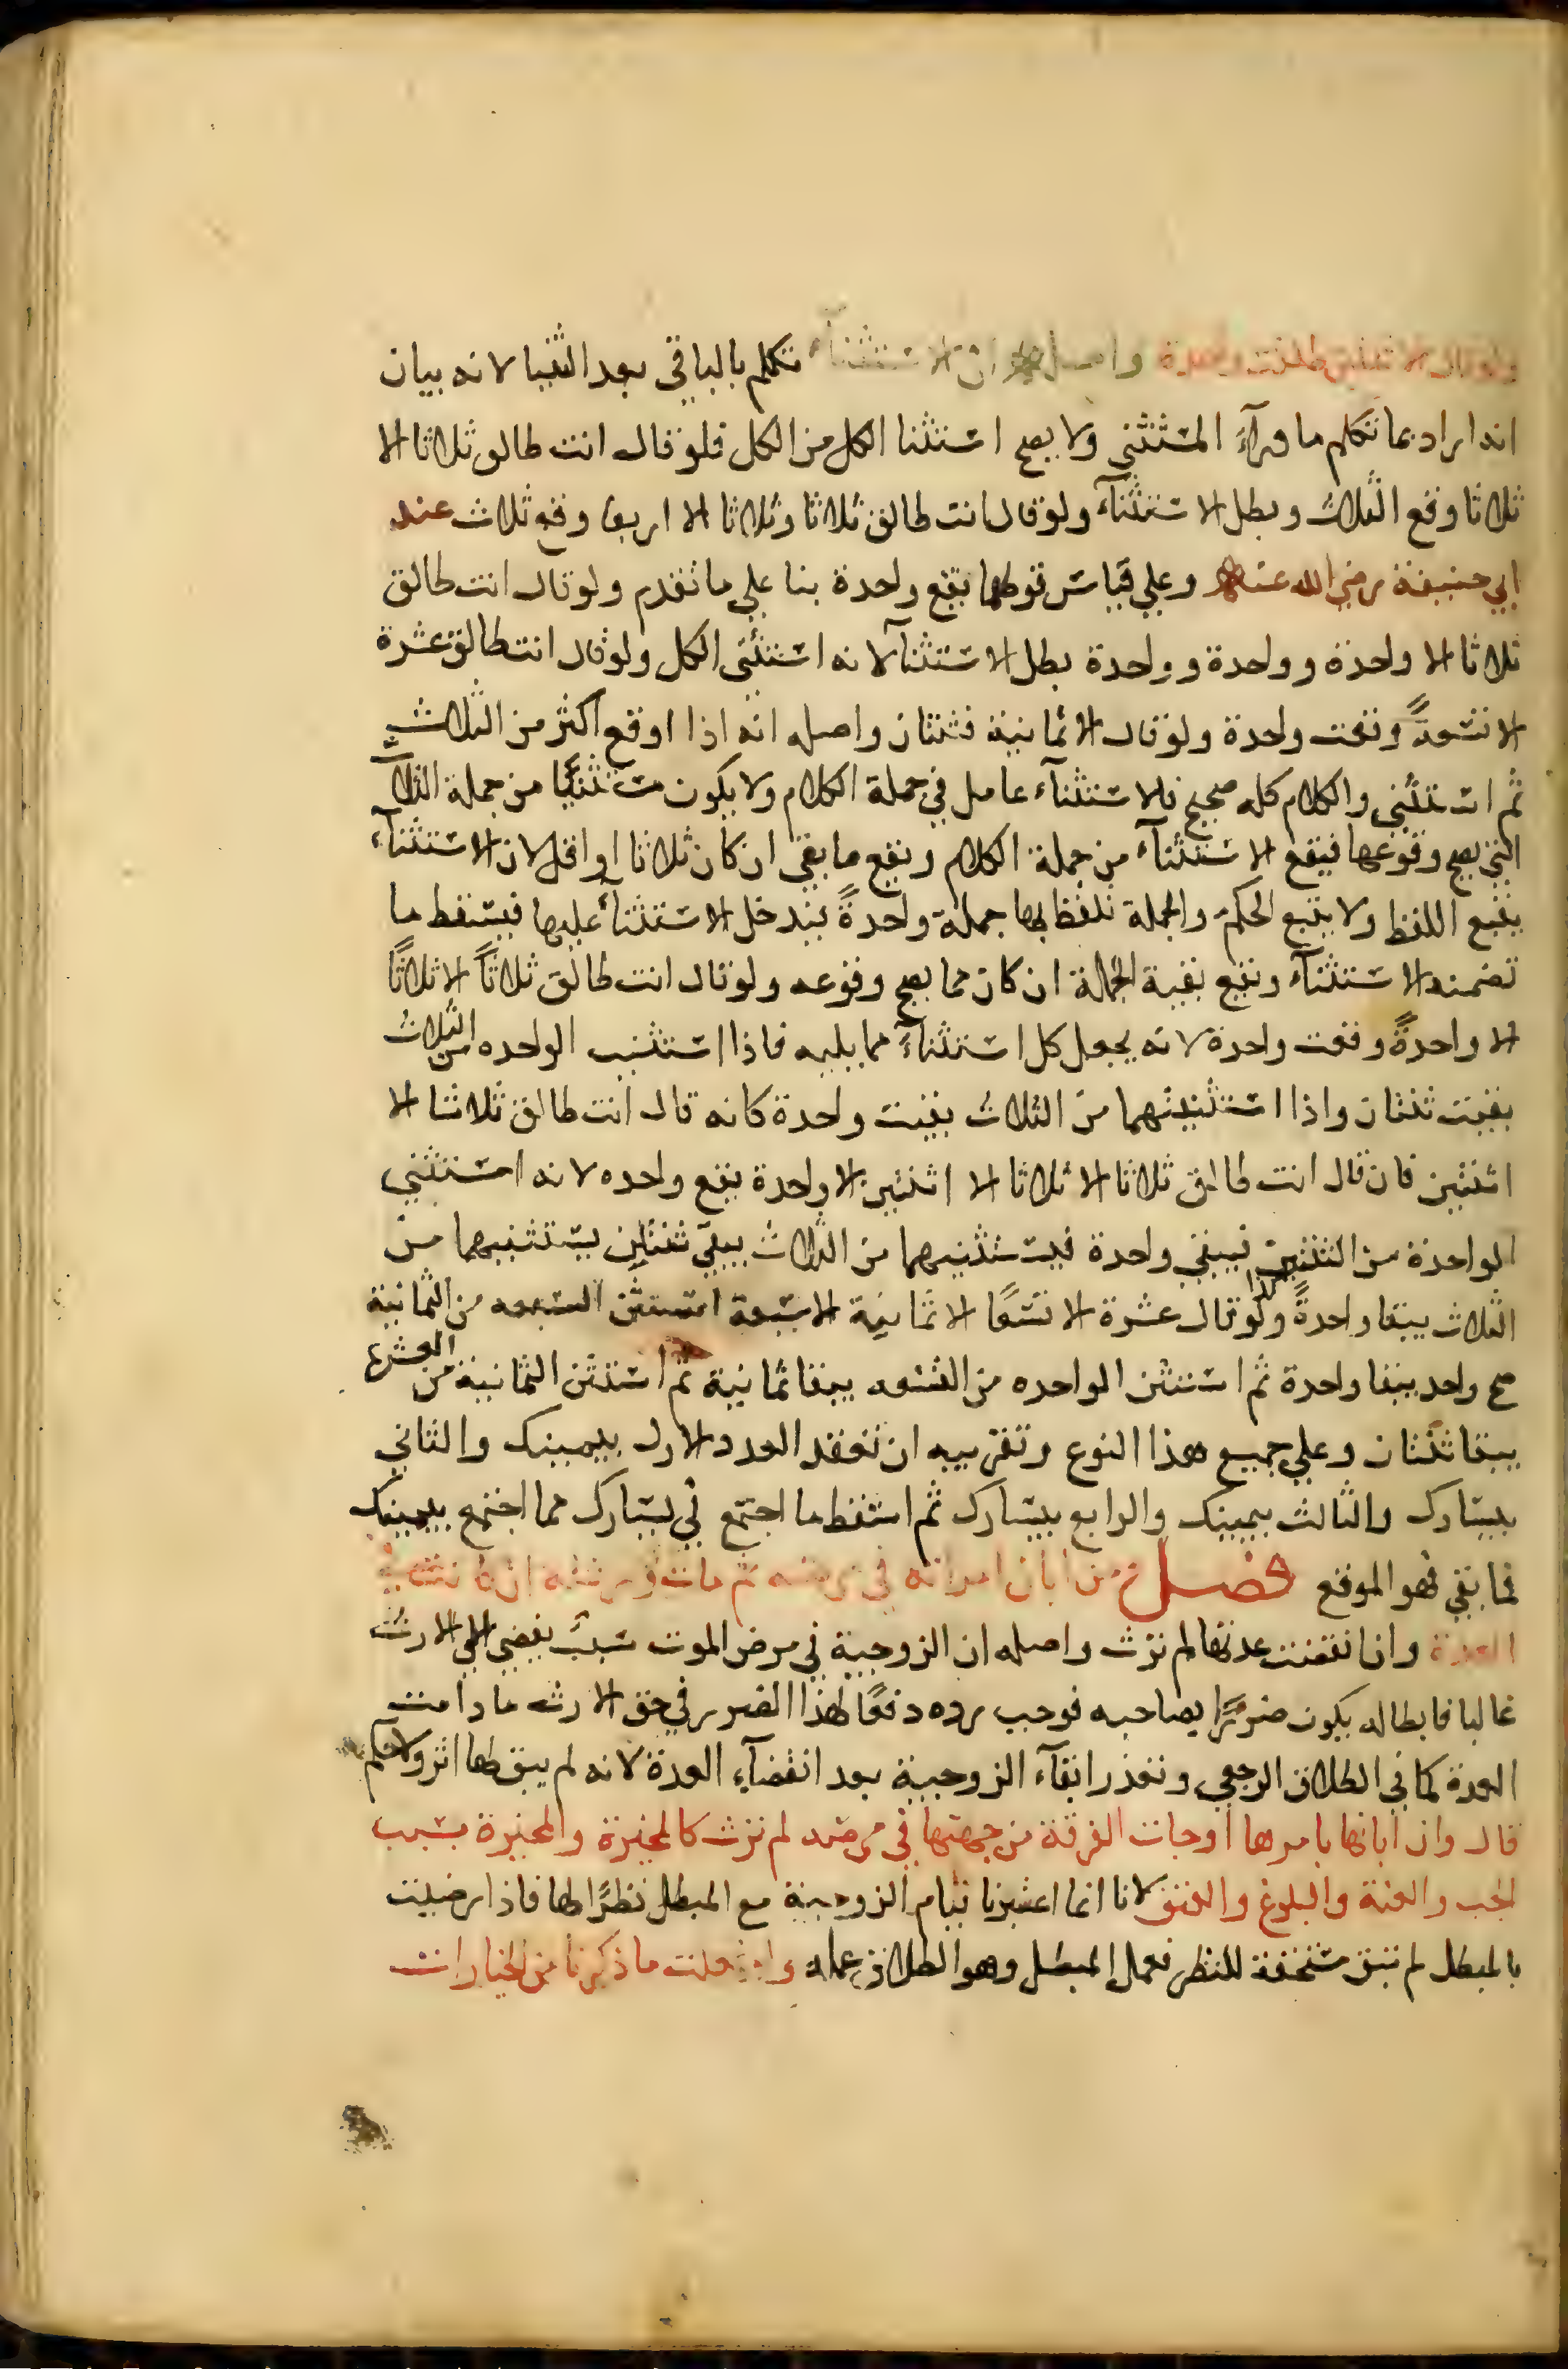 ولو قال الا ثنتين طلقت واحدة واصله ان الاستثناء تكلم بالباقي بعد الثنيا لانه بيان
انه اراد بما تكلم ما ورآء المستثنى ولا يصح استثنا الكل من الكل فلو قال انت طالق ثلاثا الا
ثلاثا وقع الثلاث وبطل الاستثنآء ولو قال انت طالق ثلاثا وثلاثا الا اربعا وقع ثلاث عند
ابي حنيفة رضي الله عنه وعلي قياس قولهما يقع واحدة بنا علي ما تقدم ولو قال انت طالق
ثلاثا الا واحدة وواحدة وواحدة بطل الاستثنآ لانه استثنى الكل ولو قال انت طالق عشرة
الا تسعةً وقعت واحدة ولو قال الا ثمانية فثنتان واصله انه اذا اوقع اكثر من الثلاث
ثم استثنى والكلام كله صحيح فالاستثنآء عامل في جملة الكلام ولا يكون مستثنيا من جملة الثلاث
التي يصح وقوعها فيقع الاستثنآء من جملة الكلام ويقع ما بقي ان كان ثلاثا او اقل لان الاستثنآء
يتبع اللفظ ولا يتبع الحكم والجملة تلفظ بها جملة واحدةً فيدخل الاستثنآ عليها فيسقط ما
تضمنه الاستثنآء ويقع بقية الجملة ان كان مما يصح وقوعه ولو قال انت طالق ثلاثاً الا ثلاثاً
الا واحدةً وقعت واحدة لانه يجعل كل استثنآءً مما يليه فاذا استثنيت الواحده من الثلاث
بقيت ثنتان واذا استثنيتهما من الثلاث بقيت واحدة كانه قال انت طالق ثلاثا الا
اثنتين فان قال انت طالق ثلاثا الا ثلاثا الا اثنتين الا واحدة يقع واحده لانه استثنى
الواحدة من الثنتين فيبقي واحدة فيستثنيهما من الثلاث يبقي ثنتان يستثنيهما من
الثلاث يبقا واحدةً وكذا لو قال عشرة الا تسعًا الا ثمانية الا سبعة استثن السبعه من الثمانية
صح واحد يبقا واحدة ثم استثن الواحده من التسعه يبقا ثمانية ثم استثن الثمانية من العشرة
يبقا ثنتان وعلي جميع هذا النوع وتقريبه ان تعقد العدد الاول بيمينك والثاني
بيسارك والثالث بيمينك والرابع بيسارك ثم اسقط ما اجتمع في يسارك مما اجتمع بيمينك
فما بقي فهو الموقع فصل من ابان امراته في مرضه ثم مات ورثته ان كانت في
العدة وان انقضت عدتها لم ترث واصله ان الزوجية في مرض الموت سبب يفضي الي الارث
غالبا فابطاله يكون ضررًا بصاحبه فوجب رده دفعًا لهذا الضرر في حق الارث ما دامت
العدة كما في الطلاق الرجعي وتعذر ابقآء الزوجية بعد انقضآء العدة لانه لم يبق لها اثر ولا حكم
قال وان ابانها بامرها او جات الفرقة من جهتها في مرضه لم ترث كالمخيرة والمخيرة بسبب
الجب والعنة والبلوغ والعتق لانا انما اعتبرنا قيام الزوجية مع المبطل نظرًا لها فاذا رضيت
بالمبطل لم تبق مستحقة للنظر فعمل المبطل وهو الطلاق عمله وان فعلت ما ذكرنا من الخيارات